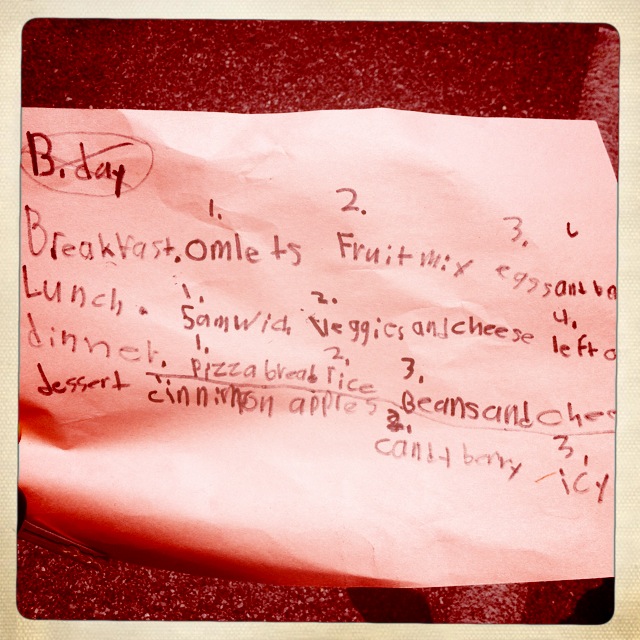 B.day
1. 2. 3.
Breakfast. omlets Fruit mix eggs and
1. 2. 4.
Lunch. Samwich Veggies and cheese left
1. 2. 3.
dinner. pizza bread rice Beans and
dessert cinnimon apples 2. 3.
candy berry icy